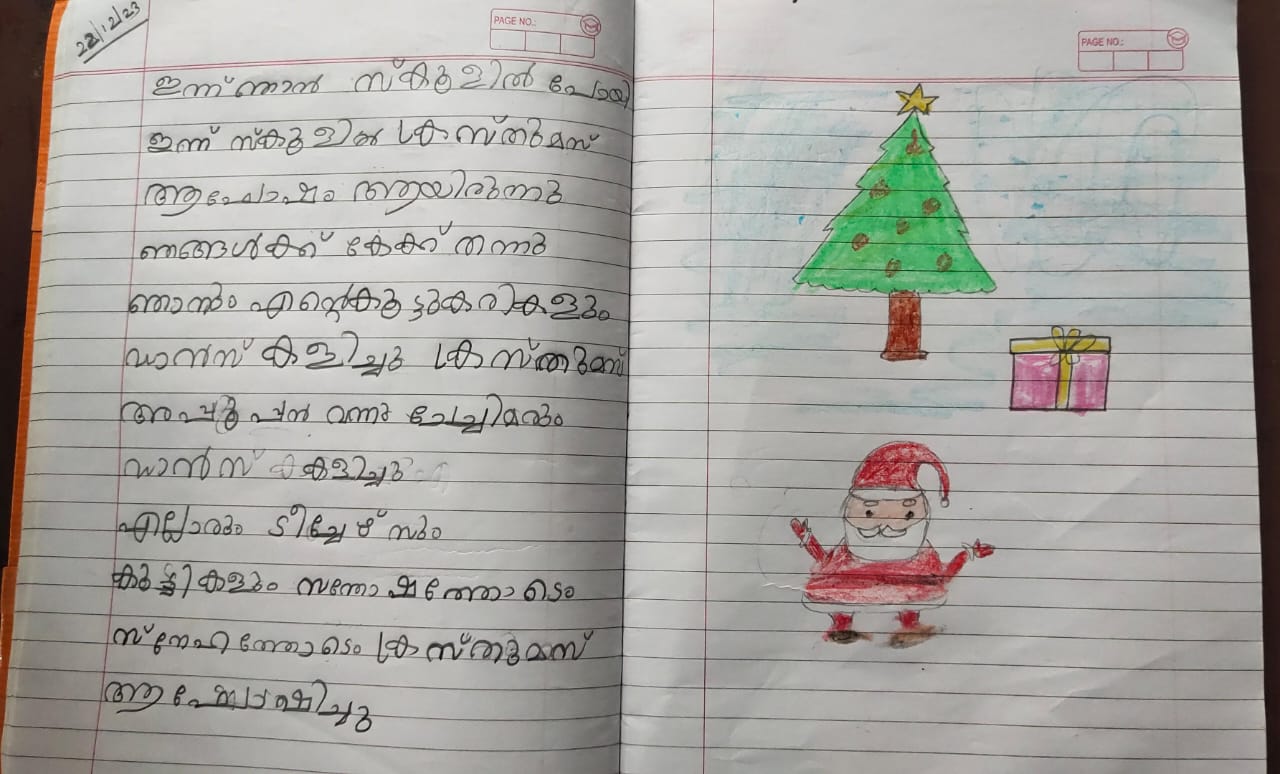 22/12/23
PAGE NO.:
PAGE NO.:
ഇന്ന് ഞാൻ സ്കുളിൽ പോയി
ഇന്ന് സ്കുളിൽ ക്രസ്തുമസ്
ആഘോഷം ആയിരുന്നു
ഞങ്ങൾക്ക് കേക്ക് തന്നു
ഞാനും എന്റെകുട്ടുകരികളും
ഡാൻസ് കളിച്ചു ക്രസ്തുമസ്
അപ്പുപ്പൻ വന്നു ചേച്ചിമരും
ഡാൻസ് കളിച്ചു
എല്ലോരും ടീച്ചേഴ്സും
കുട്ടികളും സന്തോഷത്തോടെം
സ്നേഹത്തോടെം ക്രസ്തുമസ്
ആഘോഷിച്ചു